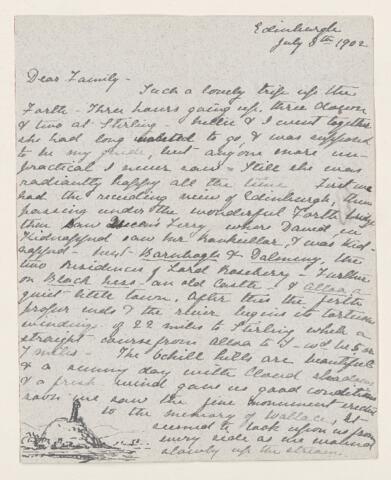 Edinburgh
July 8th 1902
Dear Family -
Such a lovely trip up the
Forth - Three hours going up, three down
& two at Stirling - Nellie & I went together
she had long wanted to go, & was supposed
to be my guide, but anyone more un-
practical I never saw - Still she was
radiantly happy all the time. First we
had the receding view of Edinburgh, then
passing under the wonderful Forth bridge
then saw Queen's Ferry where David in
Kidnapped saw Mr Rankeillor, & was kid-
napped - next Barnbogle & Dalmeny, the
two Residences of Lord Roseberry - Further
on Black ness - an old Castle - & Alloa, a
quiet little town. After this the firth
proper ends & the river begins its tortuous
windings of 22 miles to Stirling while a
straight course from Alloa to S - w'd be 5 or
7 miles - The Ochill hills are beautiful
& a sunny day with cloud shadows
& a fresh wind gave us good conditions
soon we saw the fine monument erected
to the memory of Wallace, it
seemed to look upon us from
every side as we wound
slowly up the stream.